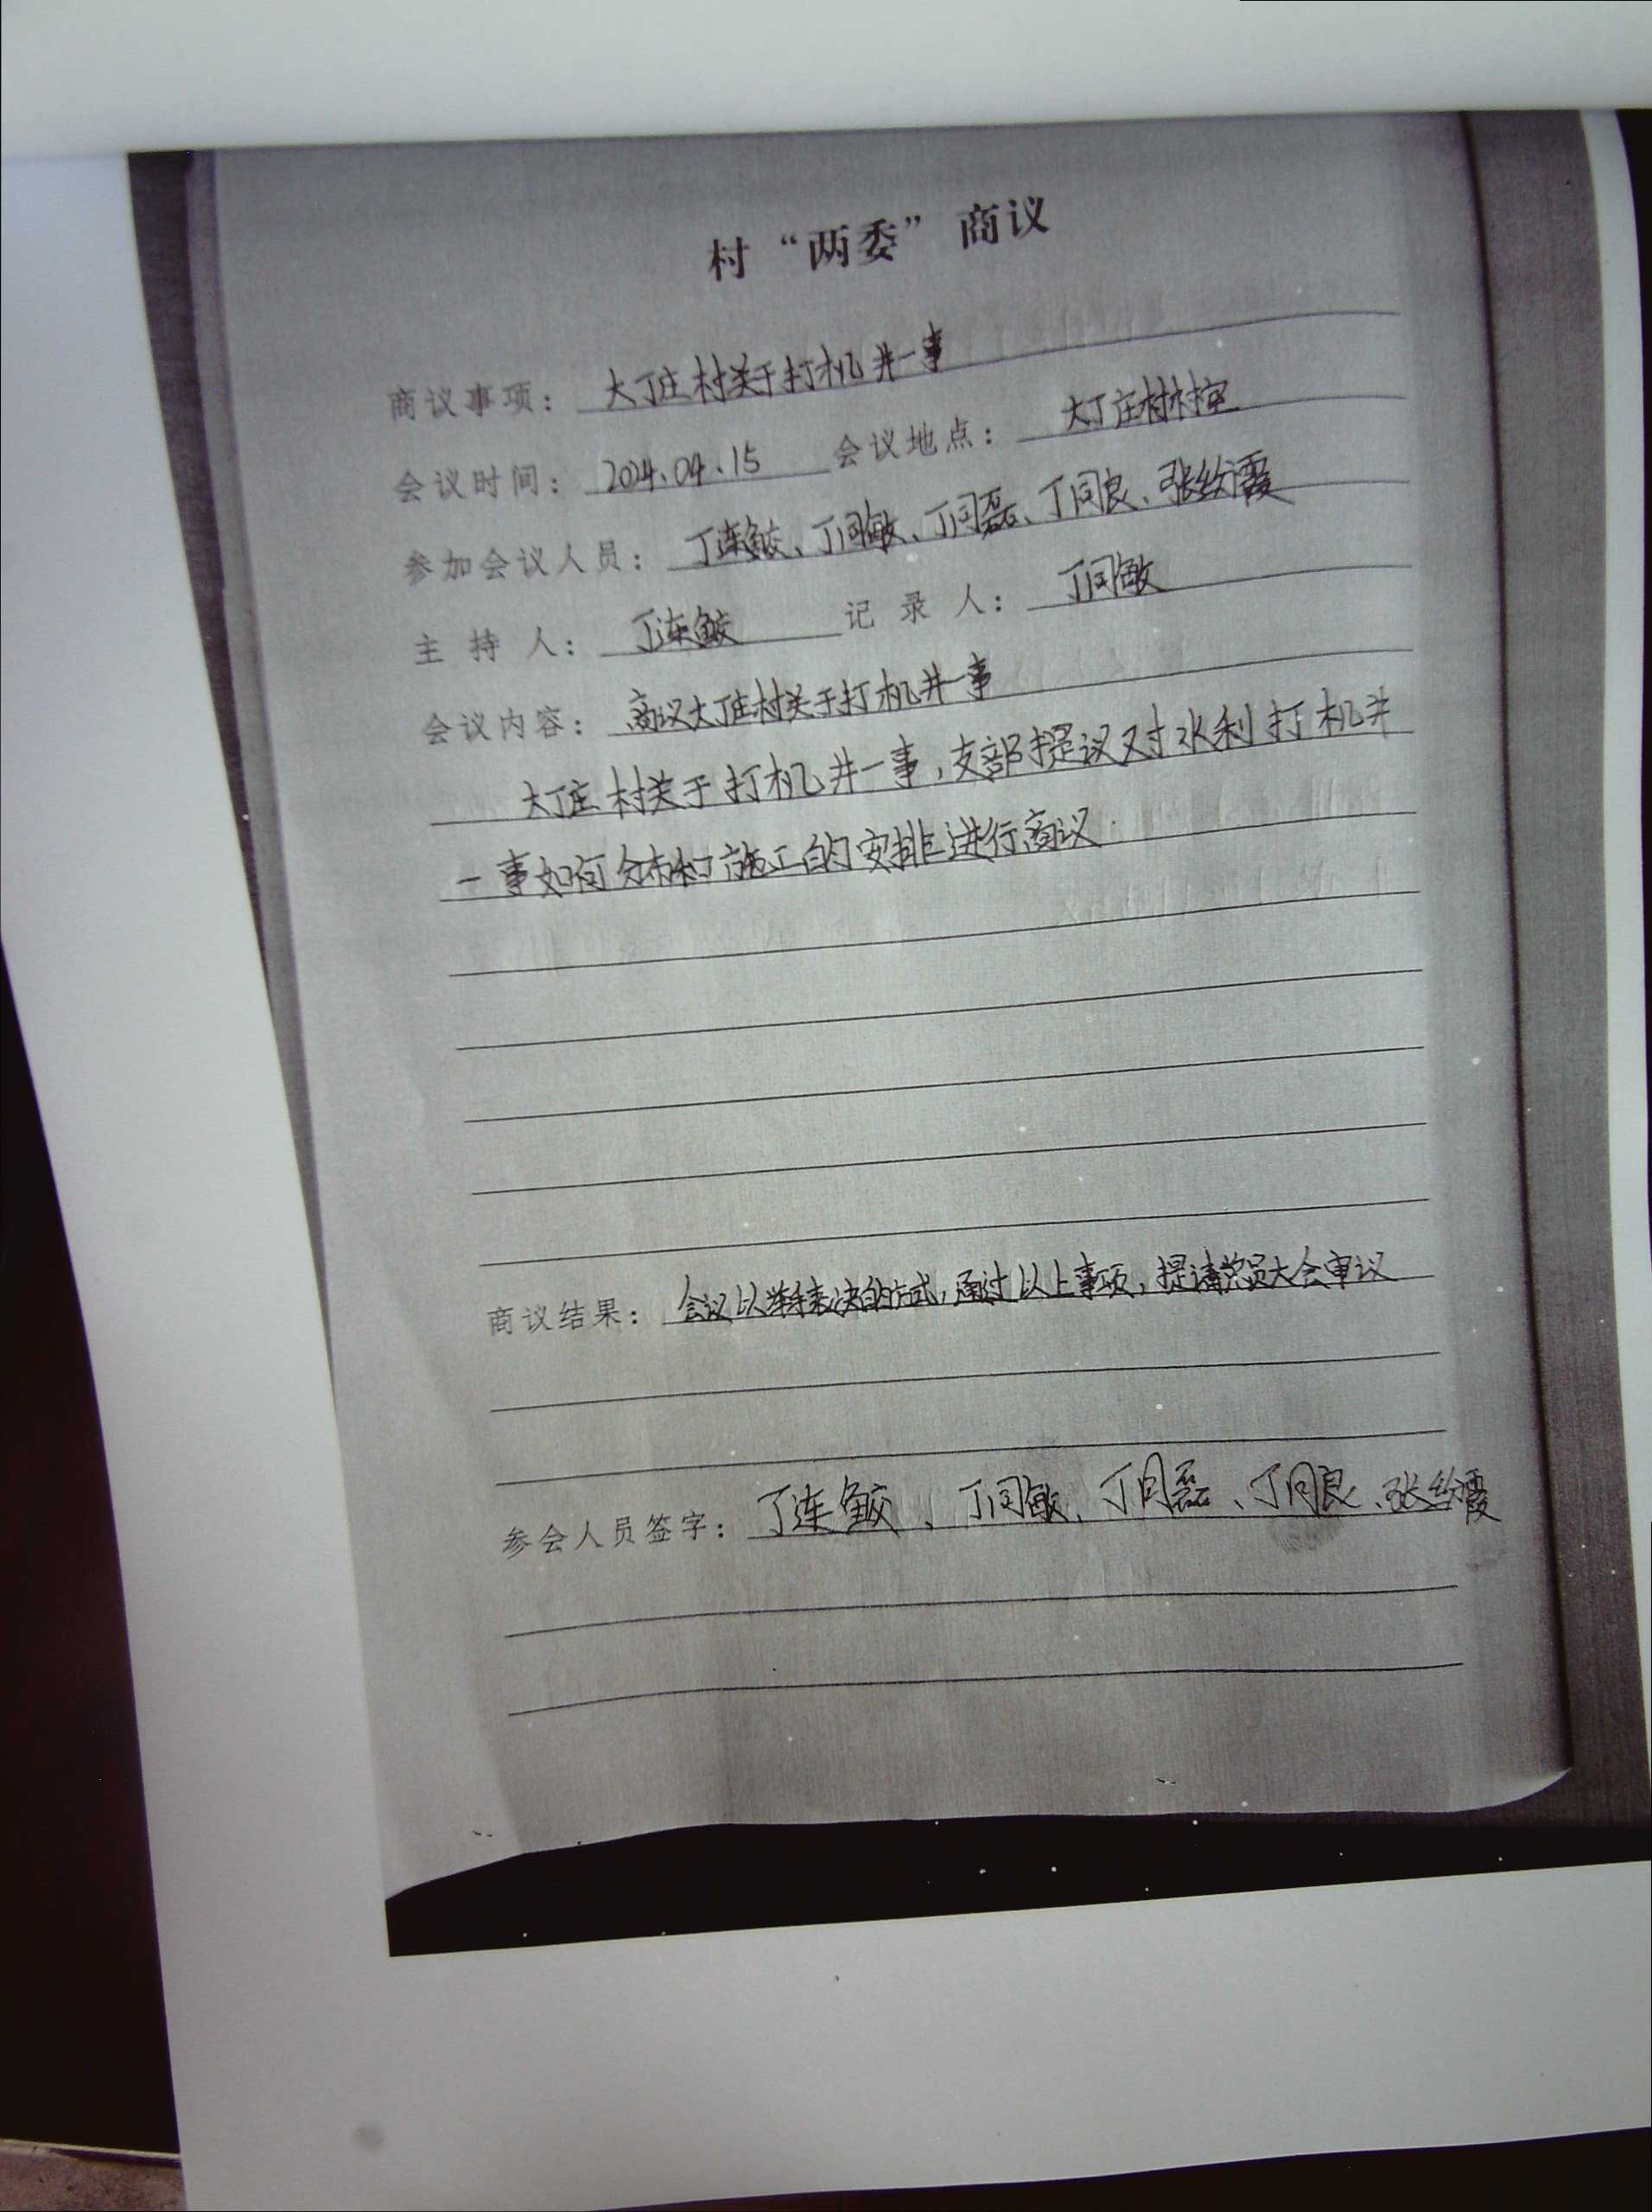 村“两委”商议
商议事项：大丁庄村关于打机井一事
会议时间：2024.04.15 会议地点：大丁庄村村室
参加会议人员：丁连鲛、丁同敏、丁同磊、丁同良、张纷霞
主持人：丁连鲛 记录人：丁同敏
会议内容：商议大丁庄村关于打机井一事
大丁庄村关于打机井一事，支部提议对水利打机井
一事如何分布和施工的安排进行商议
商议结果：会议以举手表决的方式，通过以上事项，提请党员大会审议
参会人员签字：丁连鲛、丁同敏、丁同磊、丁同良、张纷霞